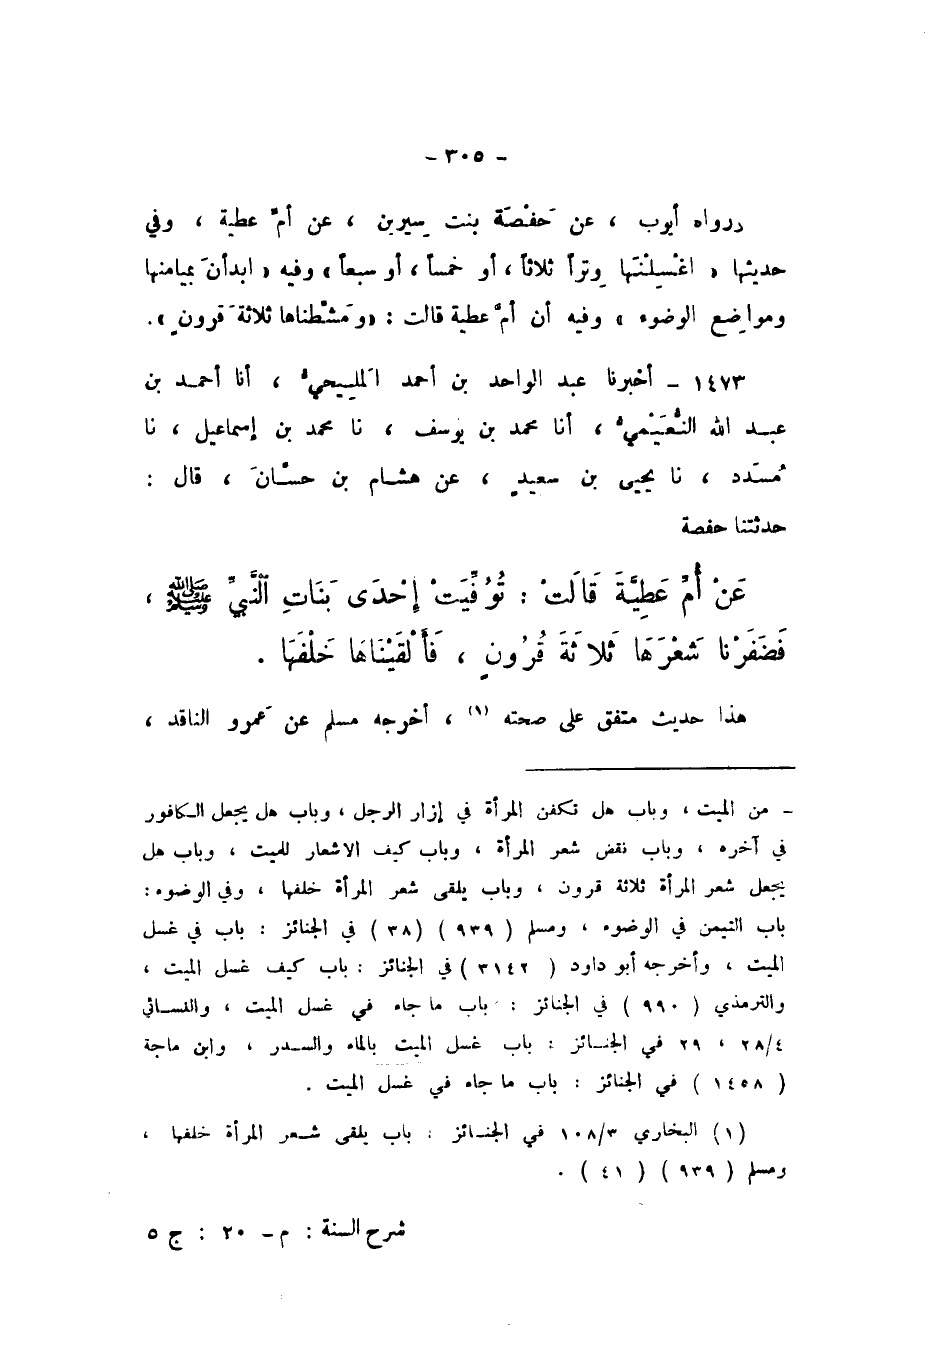 - ٣٠٥ -
ورواه أيوب ، عن حَفْصَة بنت سِيرين ، عن أمّ عطية ، وفي
حديثها « اغْسِلْنَها وِتراً ثلاثاً ، أو خمساً ، أو سبعاً » وفيه « ابدأنَ بميامنها
ومواضِع الوضوء » وفيه أن أمّ عطية قالت : « ومَشَطناها ثلاثةَ قرونٍ » .
١٤٧٣ - أخبرنا عبد الواحد بن أحمد المَلِيحيُّ ، أنا أحمد بن
عبد الله النُّعَيْمِيُّ ، أنا محمد بن يوسف ، نا محمد بن إسماعيل ، نا
مُسَدّد ، نا يحيى بن سعيدٍ ، عن هشام بن حسّانَ ، قال :
حدثتنا حفصة
عَنْ أُمِّ عَطِيَّةَ قَالَتْ : تُوُفِّيَتْ إِحْدَى بَنَاتِ النَّبِيِّ ﷺ ،
فَضَفَرْنَا شَعْرَهَا ثَلاثَةَ قُرُونٍ ، فَأَلْقَيْنَاهَا خَلْفَهَا .
هذا حديث متفق على صحته (١) ، أخرجه مسلم عن عَمرو الناقد ،
- من الميت ، وباب هل تكفن المرأة في إزار الرجل ، وباب هل يجعل الكافور
في آخره ، وباب نقض شعر المرأة ، وباب كيف الاشعار للميت ، وباب هل
يجعل شعر المرأة ثلاثة قرون ، وباب يلقى شعر المرأة خلفها ، وفي الوضوء :
باب التيمن في الوضوء ، ومسلم ( ٩٣٩ ) ( ٣٨ ) في الجنائز : باب في غسل
الميت ، وأخرجه أبو داود ( ٣١٤٢ ) في الجنائز : باب كيف غسل الميت ،
والترمذي ( ٩٩٠ ) في الجنائز : باب ما جاء في غسل الميت ، والنسائي
٢٨/٤ ، ٢٩ في الجنائز : باب غسل الميت بالماء والسدر ، وابن ماجة
( ١٤٥٨ ) في الجنائز : باب ما جاء في غسل الميت .
(١) البخاري ١٠٨/٣ في الجنائز : باب يلقى شعر المرأة خلفها ،
ومسلم ( ٩٣٩ ) ( ٤١ ) .
شرح السنة : م - ٢٠ : ج ٥